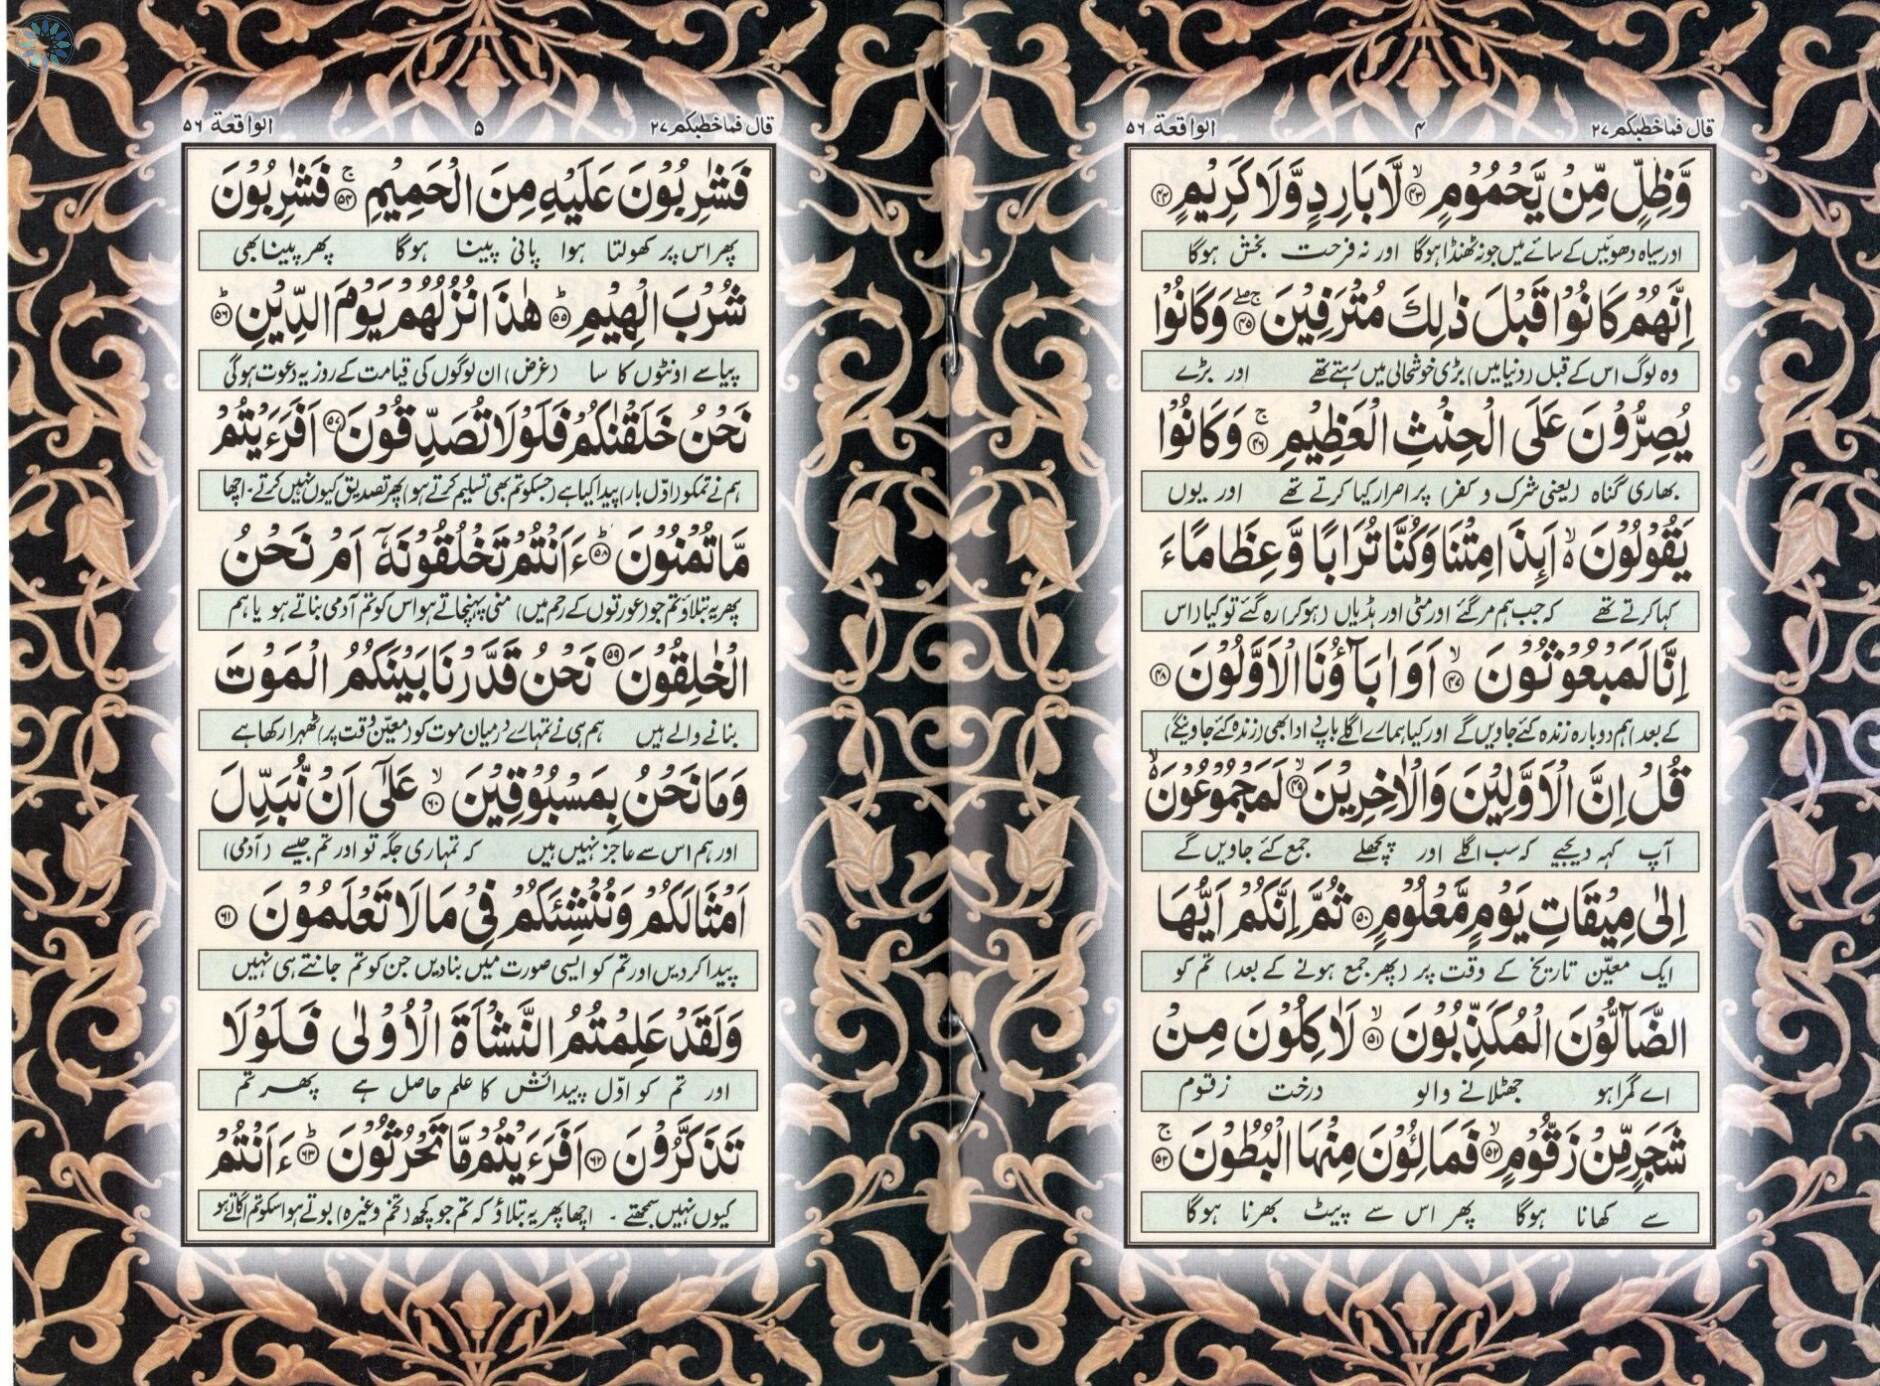 قال فماخطبكم ٢٧ ۴ الواقعة ٥٦
وَّظِلٍّ مِّنْ يَّحْمُوْمٍ ۙ﴿٤٣﴾ لَّا بَارِدٍ وَّلَا كَرِيْمٍ ﴿٤٤﴾
اور سیاہ دھوئیں کے سائے میں جو نہ ٹھنڈا ہوگا اور نہ فرحت بخش ہوگا
اِنَّهُمْ كَانُوْا قَبْلَ ذٰلِكَ مُتْرَفِيْنَ ۚۖ﴿٤٥﴾ وَكَانُوْا
وہ لوگ اس کے قبل (دنیا میں) بڑی خوشحالی میں رہتے تھے اور بڑے
يُصِرُّوْنَ عَلَى الْحِنْثِ الْعَظِيْمِ ۚ﴿٤٦﴾ وَكَانُوْا
بھاری گناہ (یعنی شرک و کفر) پر اصرار کیا کرتے تھے اور یوں
يَقُوْلُوْنَ ۙ۬ اَئِذَا مِتْنَا وَكُنَّا تُرَابًا وَّعِظَامًا ءَ
کہا کرتے تھے کہ جب ہم مر گئے اور مٹی اور ہڈیاں (ہو کر) رہ گئے تو کیا (اس
اِنَّا لَمَبْعُوْثُوْنَ ۙ﴿٤٧﴾ اَوَ اٰبَآؤُنَا الْاَوَّلُوْنَ ﴿٤٨﴾
کے بعد) ہم دوبارہ زندہ کئے جاویں گے اور کیا ہمارے اگلے باپ دادا بھی (زندہ کئے جاوینگے)
قُلْ اِنَّ الْاَوَّلِيْنَ وَالْاٰخِرِيْنَ ۙ﴿٤٩﴾ لَمَجْمُوْعُوْنَ ۙ۬
آپ کہہ دیجیے کہ سب اگلے اور پچھلے جمع کئے جاویں گے
اِلٰى مِيْقَاتِ يَوْمٍ مَّعْلُوْمٍ ﴿٥٠﴾ ثُمَّ اِنَّكُمْ اَيُّهَا
ایک معیّن تاریخ کے وقت پر (پھر جمع ہونے کے بعد) تم کو
الضَّآلُّوْنَ الْمُكَذِّبُوْنَ ۙ﴿٥١﴾ لَاٰكِلُوْنَ مِنْ
اے گمراہو جھٹلانے والو درخت زقوم
شَجَرٍ مِّنْ زَقُّوْمٍ ۙ﴿٥٢﴾ فَمَالِئُوْنَ مِنْهَا الْبُطُوْنَ ۚ﴿٥٣﴾
سے کھانا ہوگا پھر اس سے پیٹ بھرنا ہوگا
قال فماخطبكم ٢٧ ۵ الواقعة ٥٦
فَشٰرِبُوْنَ عَلَيْهِ مِنَ الْحَمِيْمِ ۚ﴿٥٤﴾ فَشٰرِبُوْنَ
پھر اس پر کھولتا ہوا پانی پینا ہوگا پھر پینا بھی
شُرْبَ الْهِيْمِ ؕ﴿٥٥﴾ هٰذَا نُزُلُهُمْ يَوْمَ الدِّيْنِ ؕ﴿٥٦﴾
پیاسے اونٹوں کا سا (غرض) ان لوگوں کی قیامت کے روز یہ دعوت ہوگی
نَحْنُ خَلَقْنٰكُمْ فَلَوْلَا تُصَدِّقُوْنَ ﴿٥٧﴾ اَفَرَءَيْتُمْ
ہم نے تمکو (اوّل بار) پیدا کیا ہے (جسکو تم بھی تسلیم کرتے ہو) پھر تصدیق کیوں نہیں کرتے۔ اچھا
مَّا تُمْنُوْنَ ؕ﴿٥٨﴾ ءَاَنْتُمْ تَخْلُقُوْنَهٗۤ اَمْ نَحْنُ
پھر یہ بتلاؤ تم جو (عورتوں کے رحم میں) منی پہنچاتے ہو اس کو تم آدمی بناتے ہو یا ہم
الْخٰلِقُوْنَ ﴿٥٩﴾ نَحْنُ قَدَّرْنَا بَيْنَكُمُ الْمَوْتَ
بنانے والے ہیں ہم ہی نے تمہارے درمیان موت کو (معیّن وقت پر) ٹھہرا رکھا ہے
وَمَا نَحْنُ بِمَسْبُوْقِيْنَ ۙ﴿٦٠﴾ عَلٰٓى اَنْ نُّبَدِّلَ
اور ہم اس سے عاجز نہیں ہیں کہ تمہاری جگہ تو اور تم جیسے (آدمی)
اَمْثَالَكُمْ وَنُنْشِئَكُمْ فِيْ مَا لَا تَعْلَمُوْنَ ﴿٦١﴾
پیدا کر دیں اور تم کو ایسی صورت میں بنادیں جن کو تم جانتے ہی نہیں
وَلَقَدْ عَلِمْتُمُ النَّشْاَةَ الْاُوْلٰى فَلَوْلَا
اور تم کو اوّل پیدائش کا علم حاصل ہے پھر تم
تَذَكَّرُوْنَ ﴿٦٢﴾ اَفَرَءَيْتُمْ مَّا تَحْرُثُوْنَ ؕ﴿٦٣﴾ ءَاَنْتُمْ
کیوں نہیں سمجھتے۔ اچھا پھر یہ بتلاؤ کہ تم جو کچھ (تخم وغیرہ) بوتے ہو اسکو تم اگاتے ہو